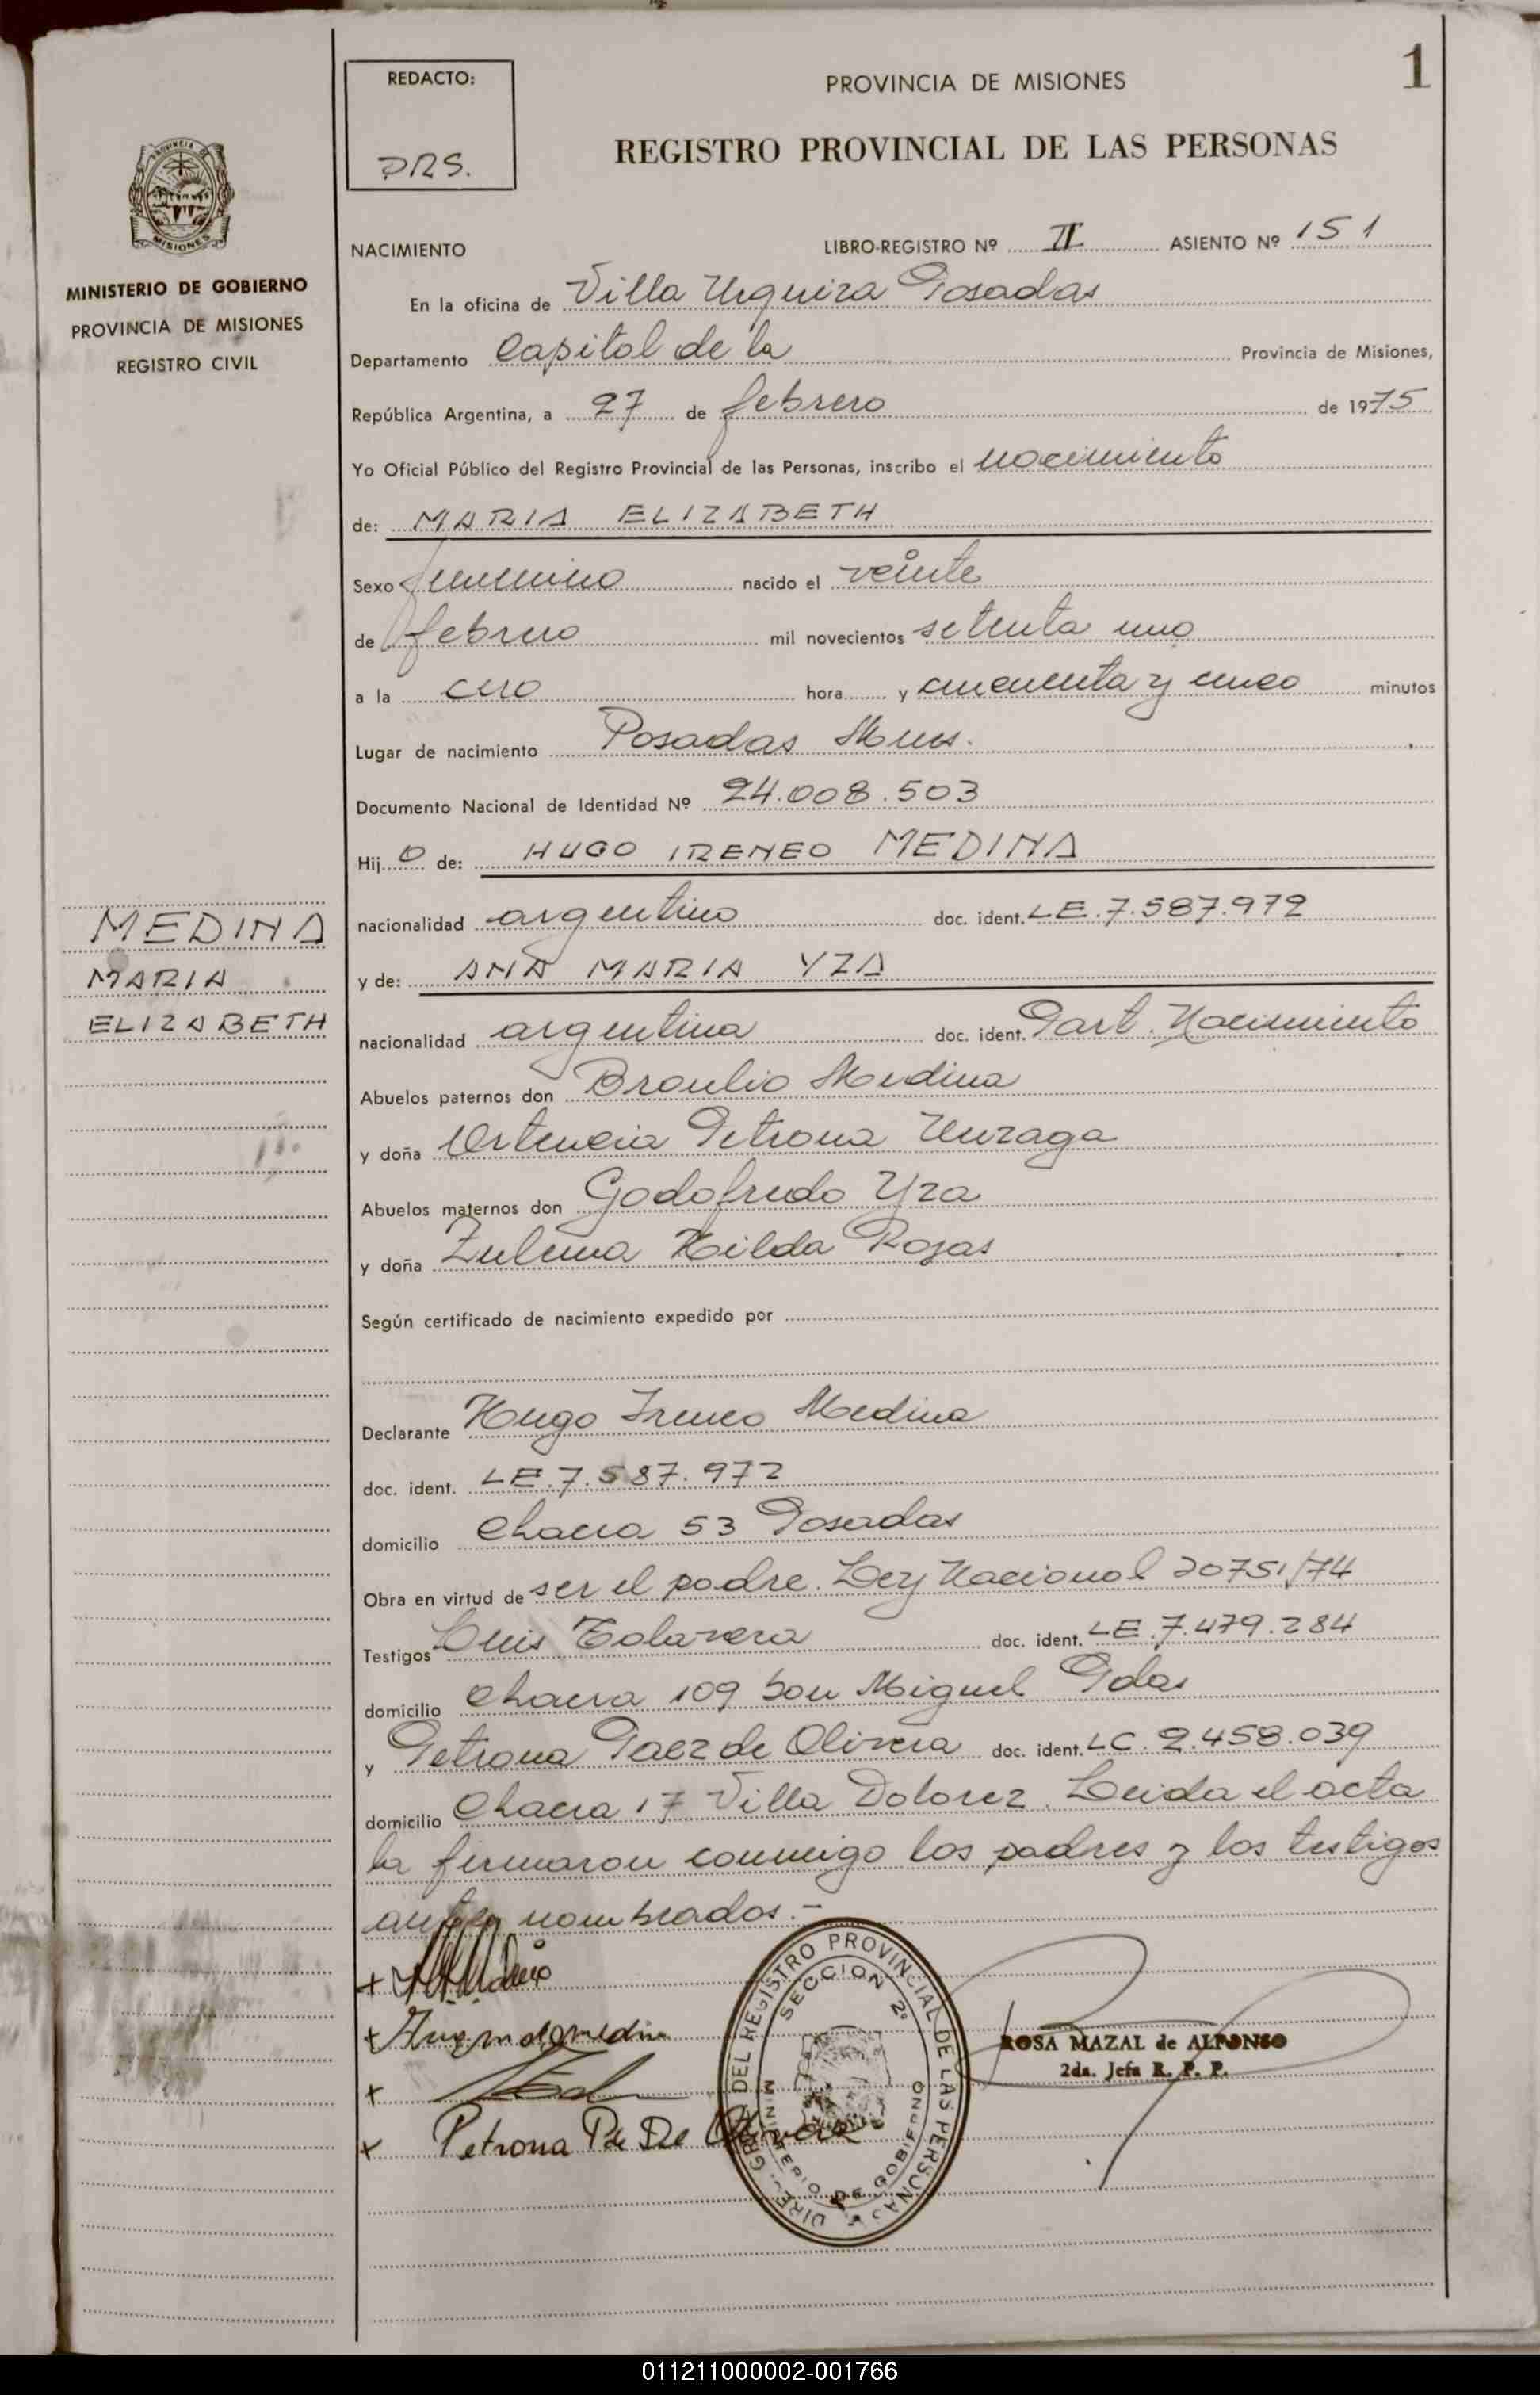 1
REDACTO:
PRS.
PROVINCIA DE MISIONES
REGISTRO PROVINCIAL DE LAS PERSONAS
MISIONES
MINISTERIO DE GOBIERNO
PROVINCIA DE MISIONES
REGISTRO CIVIL
NACIMIENTO LIBRO-REGISTRO Nº II ASIENTO Nº 151
En la oficina de Villa Urquiza Posadas
Departamento Capital de la Provincia de Misiones,
República Argentina, a 27 de febrero de 1975
Yo Oficial Público del Registro Provincial de las Personas, inscribo el nacimiento
de: MARIA ELIZABETH
Sexo femenino nacido el veinte
de febrero mil novecientos setenta uno
a la cero hora y cincuenta y cinco minutos
Lugar de nacimiento Posadas Mnes.
Documento Nacional de Identidad Nº 24.008.503
Hij o de: HUGO IRENEO MEDINA
nacionalidad argentino doc. ident. LE.7.587.972
y de: ANA MARIA YZA
nacionalidad argentina doc. ident. Part. Nacimiento
MEDINA
MARIA
ELIZABETH
Abuelos paternos don Braulio Medina
y doña Ortencia Petrona
Abuelos maternos don Godofredo Yza
y doña Zulema Hilda Rojas
Según certificado de nacimiento expedido por
Declarante Hugo Ireneo Medina
doc. ident. LE.7.587.972
domicilio Chacra 53 Posadas
Obra en virtud de ser el padre. Ley Nacional 20751/74
Testigos Luis Talavera doc. ident. LE.7.479.284
domicilio Chacra 109 San Miguel Pdas
y Petrona Paez de Olivera doc. ident. LC.2.458.039
domicilio Chacra 17 Villa Dolorez. Leida el acta
la firmaron conmigo los padres y los testigos
antes nombrados.-
+
+ Ana m de medina
+
+ Petrona P de De Olivera
DIRE. GRAL. DEL REGISTRO PROVINCIAL DE LAS PERSONAS
SECCION 2º
MINISTERIO DE GOBIERNO
ROSA MAZAL de ALFONSO
2da. Jefa R. P. P.
011211000002-001766